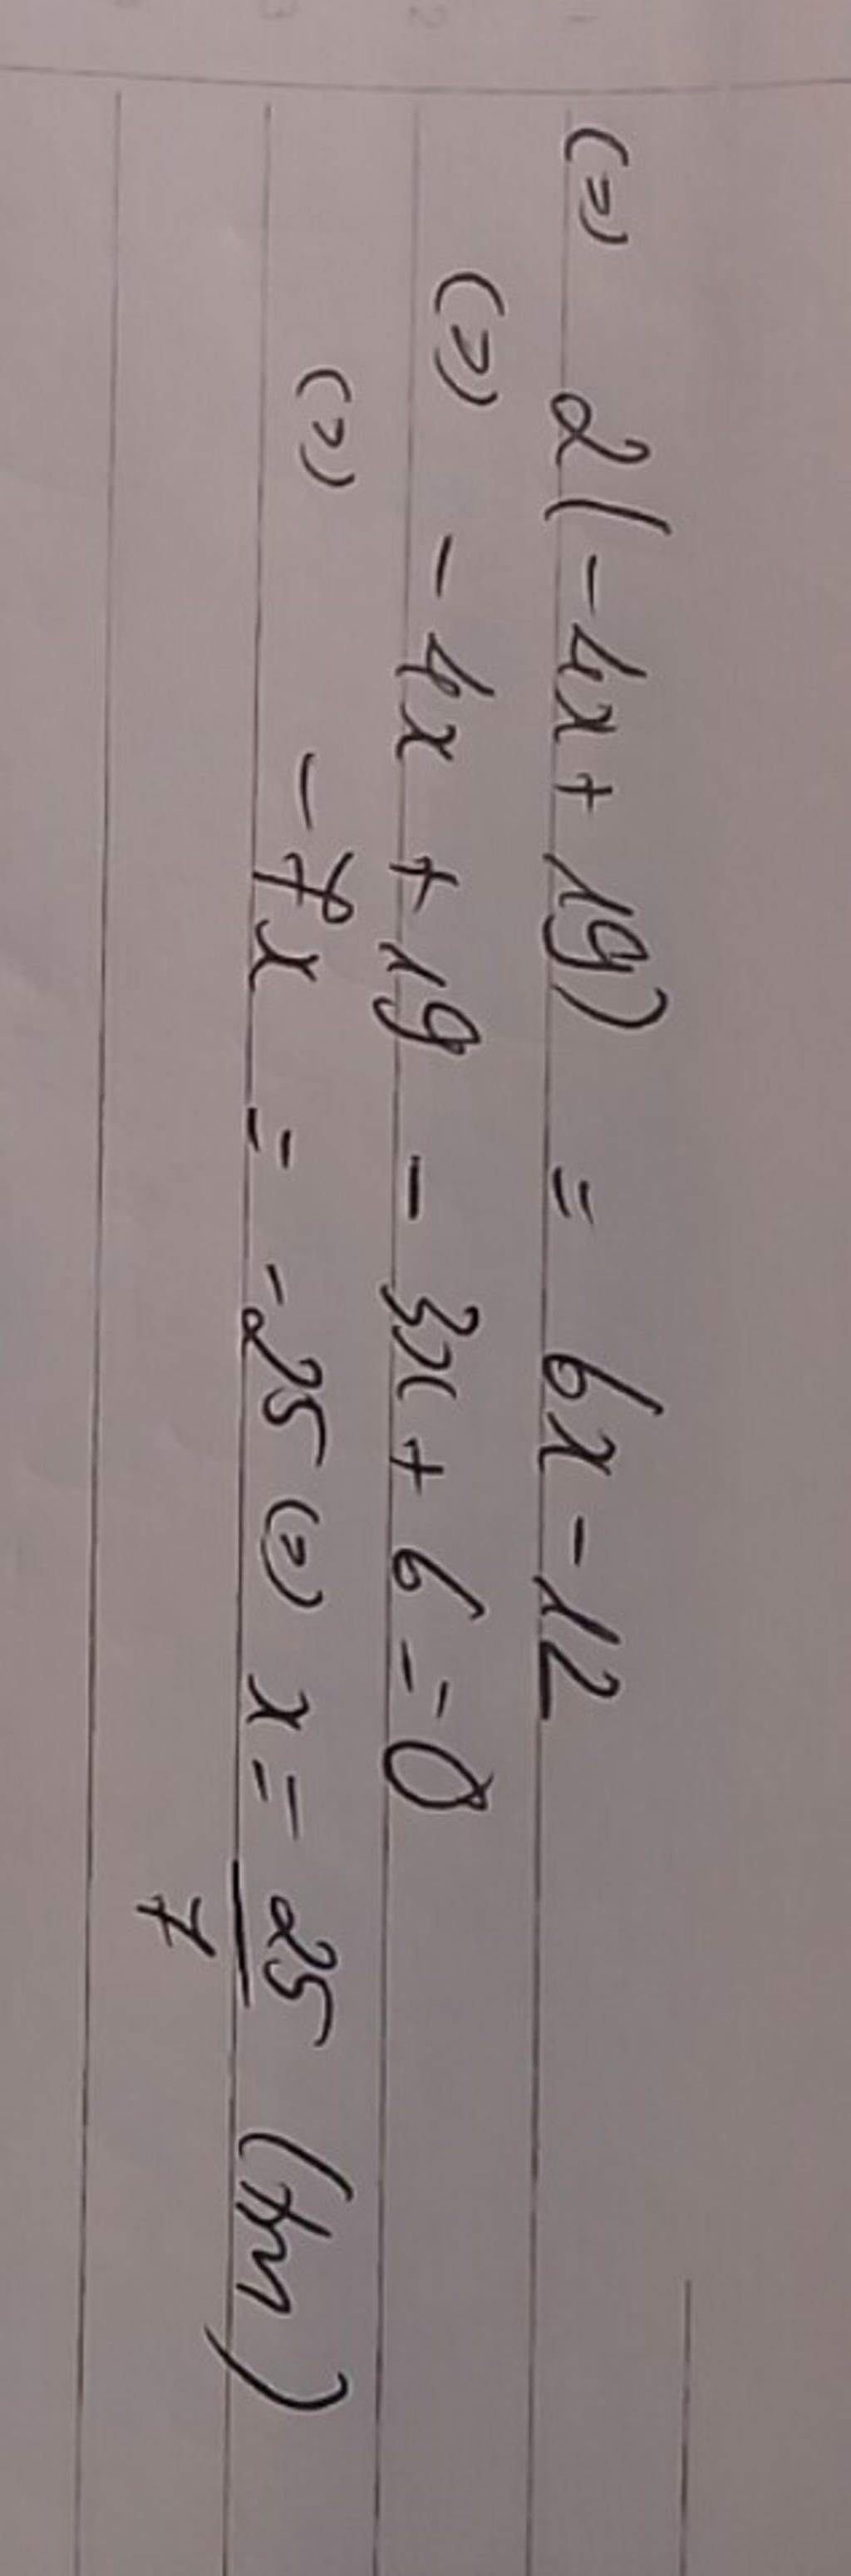 (=) 2(-4x + 19) = 6x - 12
(=) -4x + 19 - 3x + 6 = 0
(=) -7x = -25 (=) x = 25/7 (tm)